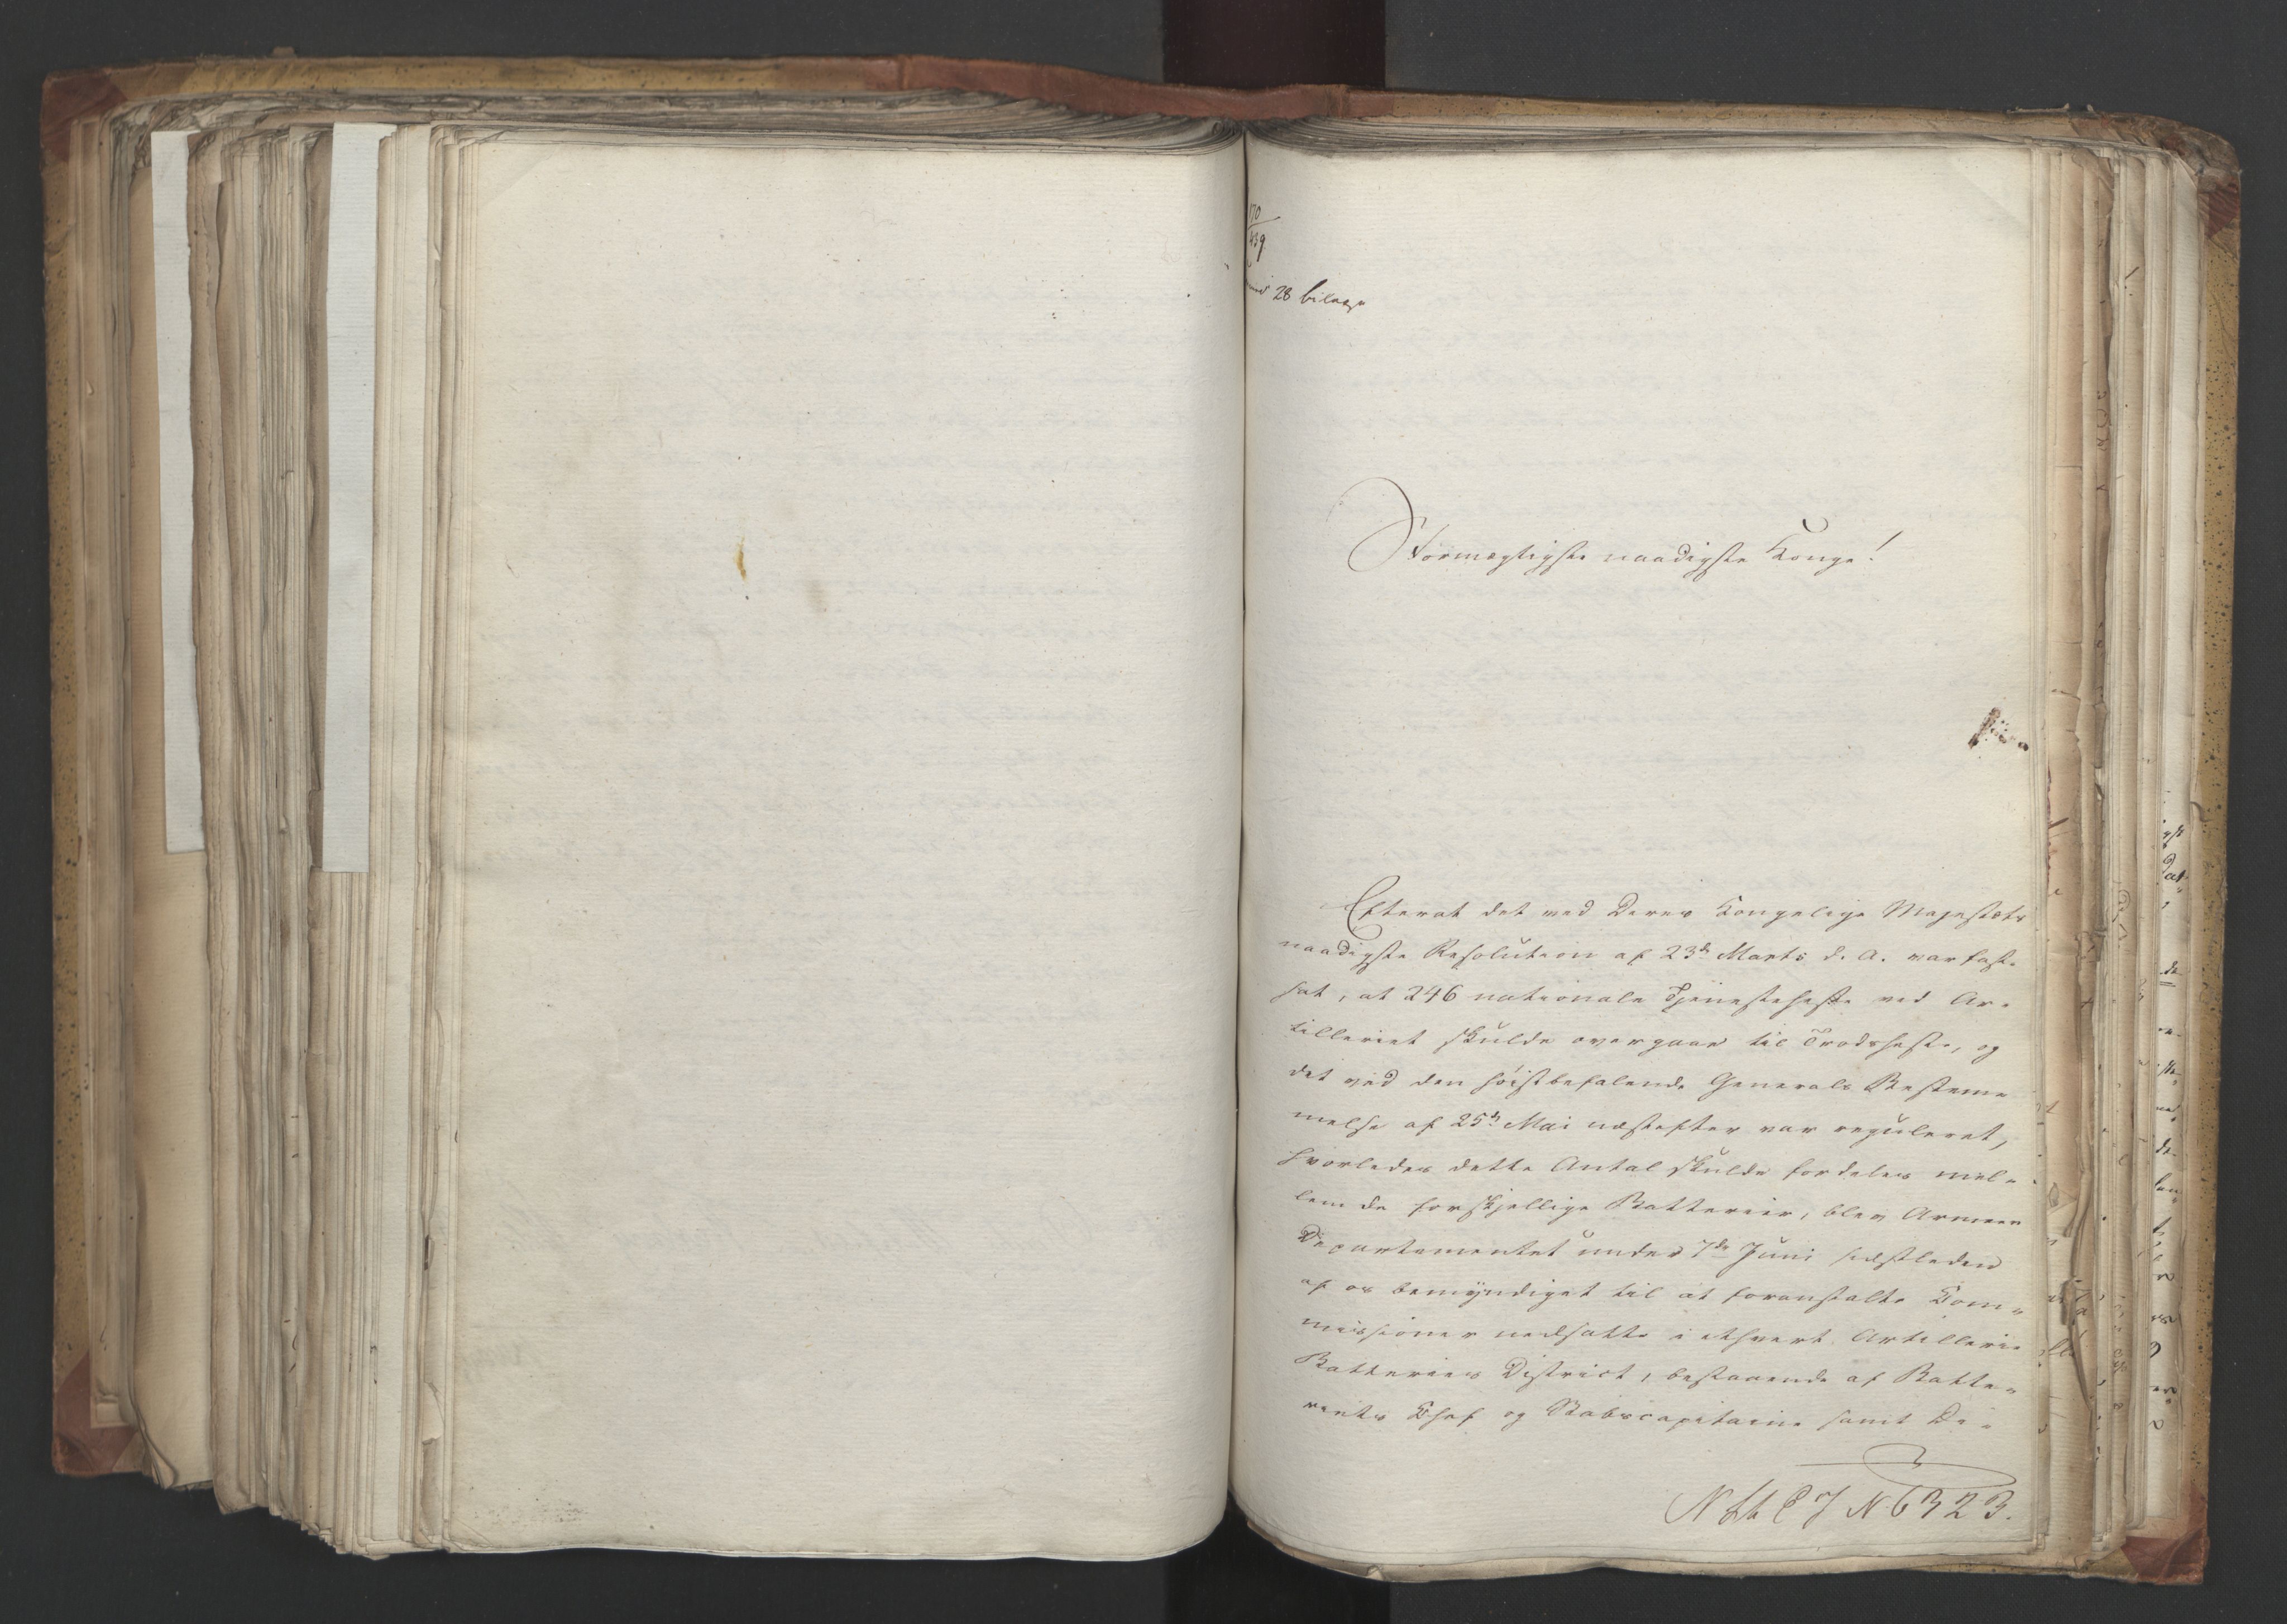 170
439
med 28 bilage
Stormægtigste naadigste Konge!
Efterat det ved Deres Kongelige Majestæts
naadigste Resolution af 23de Marts d. A. var fast-
sat, at 246 nationale Tjenesteheste ved Ar-
tilleriet skulde overgaae til Trodsheste, og
det ved den høistbefalende Generals Bestem-
melse af 25de Mai næstefter var reguleret,
hvorledes dette Antal skulde fordeles mel-
lem de forskjellige Batterier, blev Armee
Departementet under 7de Juni sidstleden
af os bemyndiget til at foranstalte Kom-
missioner nedsatte i ethvert Artillerie
Batteries District, bestaaende af Batte-
riets Chef og Stabscapitaine samt De-
6323.